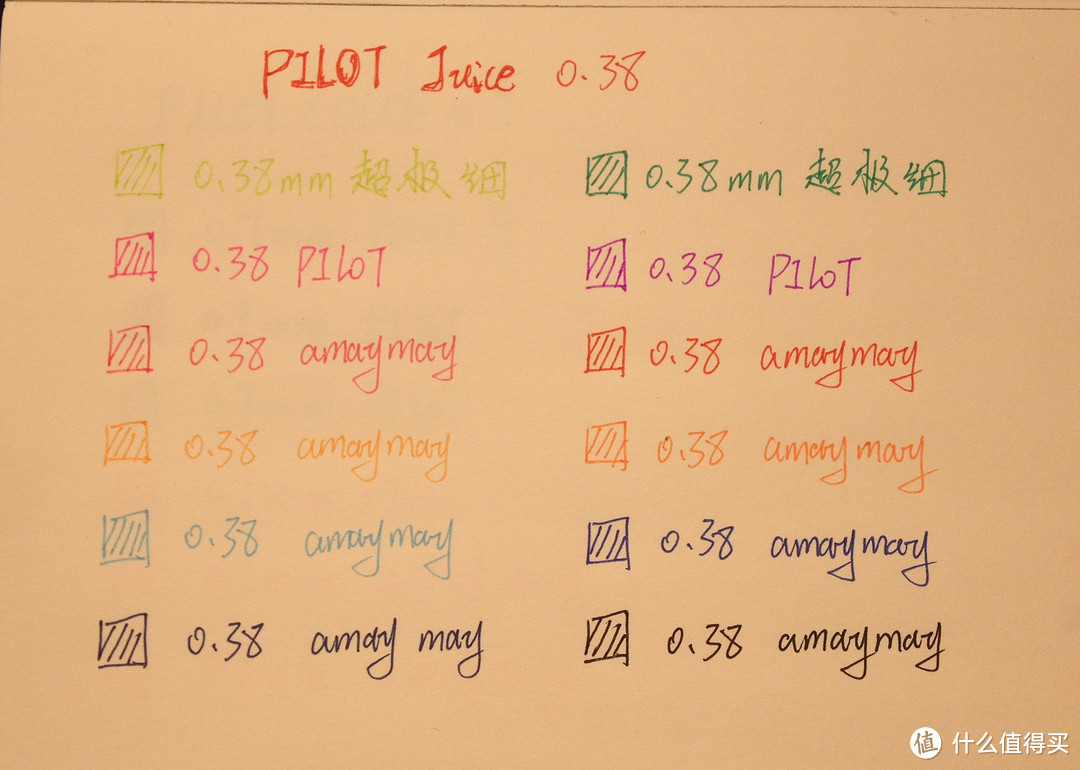 PILOT Juice 0.38
0.38mm 超极细 0.38mm 超极细
0.38 PILOT 0.38 PILOT
0.38 amaymay 0.38 amaymay
0.38 amaymay 0.38 amaymay
0.38 amaymay 0.38 amaymay
0.38 amay may 0.38 amaymay
值 什么值得买